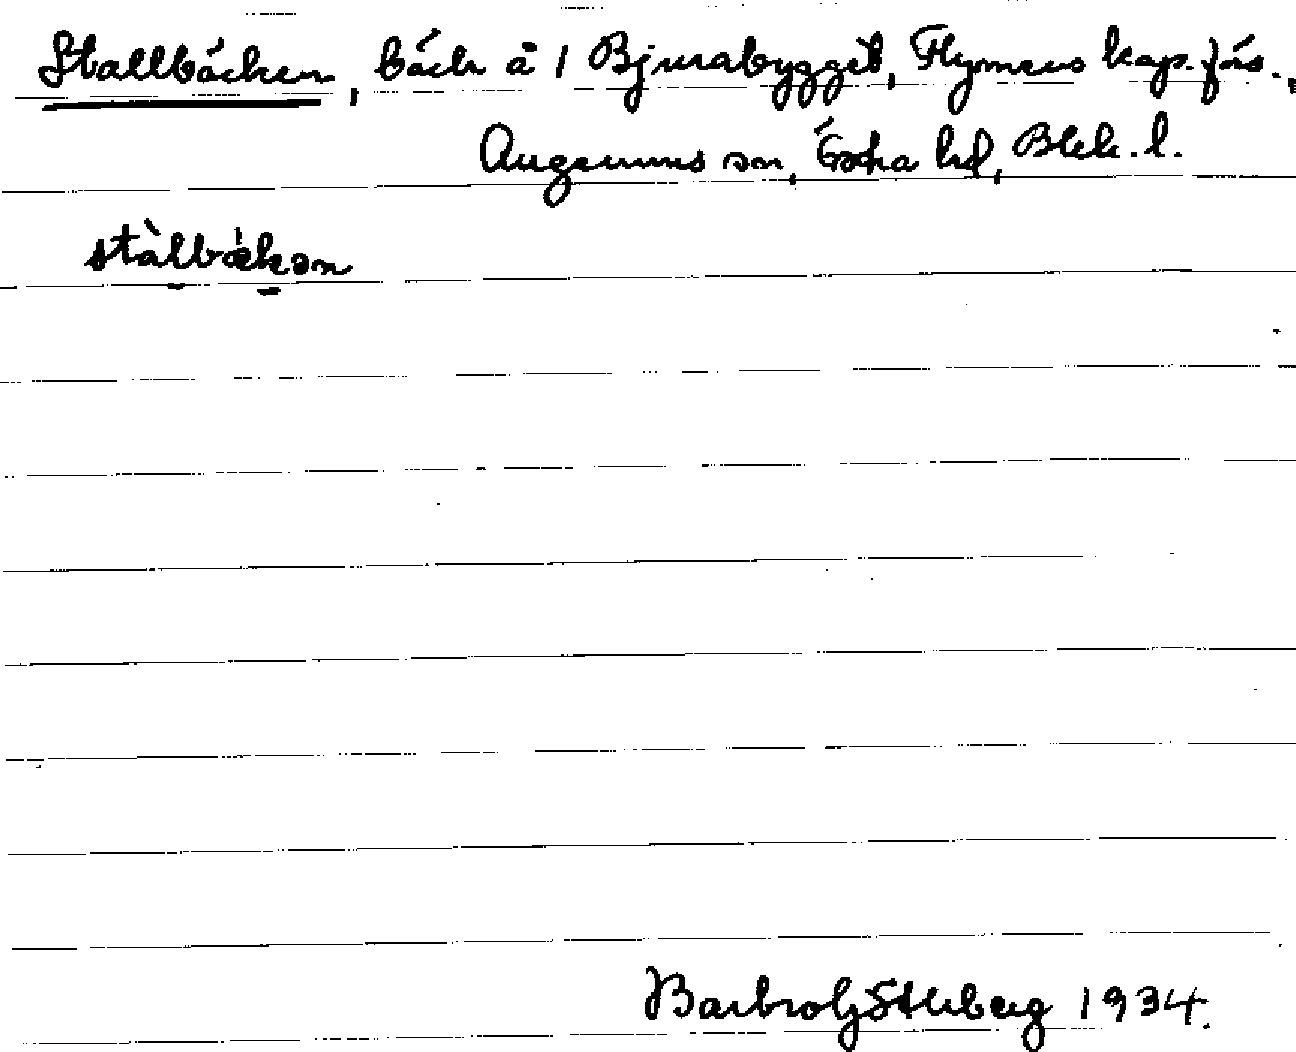 Stallbäcken, bäck å 1 Bjurabygget, Flymens kap.förs.,
Augerums sn, Östra hd, Blek. l.
stàlbækən
Barbro 1934.